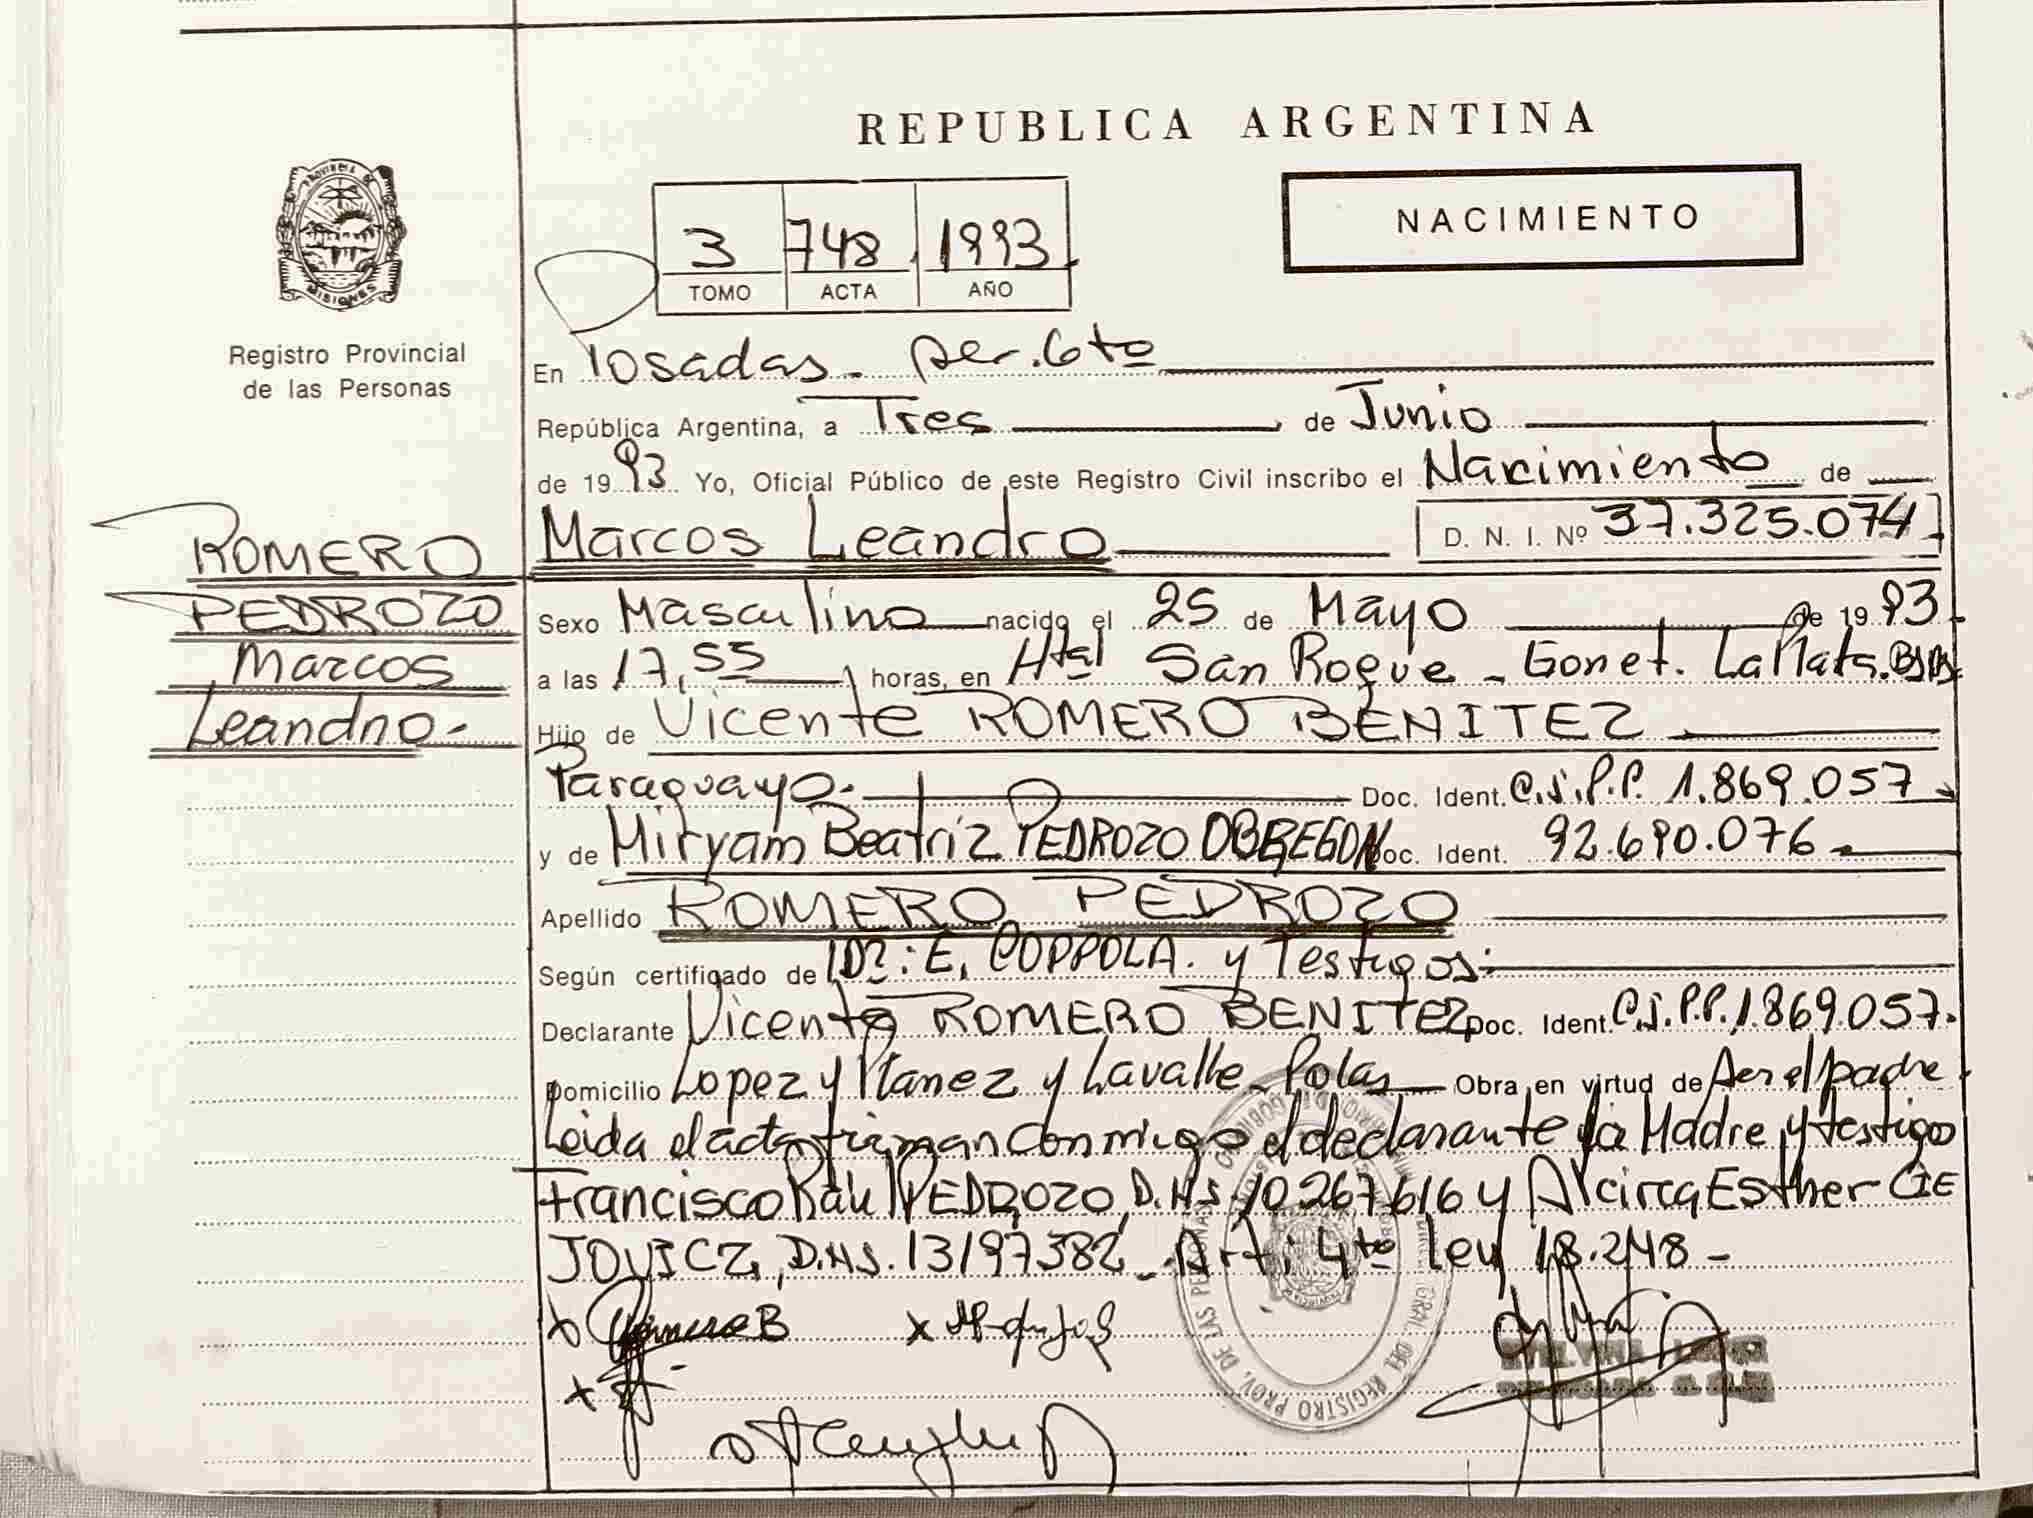 REPUBLICA ARGENTINA
NACIMIENTO
3 748 1993
TOMO ACTA AÑO
PROVINCIA DE
MISIONES
Registro Provincial
de las Personas
ROMERO
PEDROZO
Marcos
Leandro.-
En Posadas - Secc. 6to
República Argentina, a Tres de Junio
de 1993 Yo, Oficial Público de este Registro Civil inscribo el Nacimiento de
Marcos Leandro D. N. I. Nº 37.325.074
Sexo Masculino nacido el 25 de Mayo de 1993
a las 17,55 horas, en Htal San Roque - Gonet. La Plata. Bs As
Hijo de Vicente ROMERO BENITEZ
Paraguayo.- Doc. Ident. C.I.P.P. 1.869.057
y de Miryam Beatriz PEDROZO OBREGON Doc. Ident. 92.690.076
Apellido ROMERO PEDROZO
Según certificado de Dr: E. COPPOLA. y Testigos:
Declarante Vicente ROMERO BENITEZ Doc. Ident. C.I.P.P. 1.869.057.
Domicilio Lopez y Planez y Lavalle - Pdas Obra en virtud de ser el padre
Leida el acta firman conmigo el declarante la Madre y testigos
Francisco Raul PEDROZO, D.N.I. 10.267.616 y Alcira Esther GIE
JOVICZ, D.N.I. 13197382 - Art: 4to ley 18.248 -